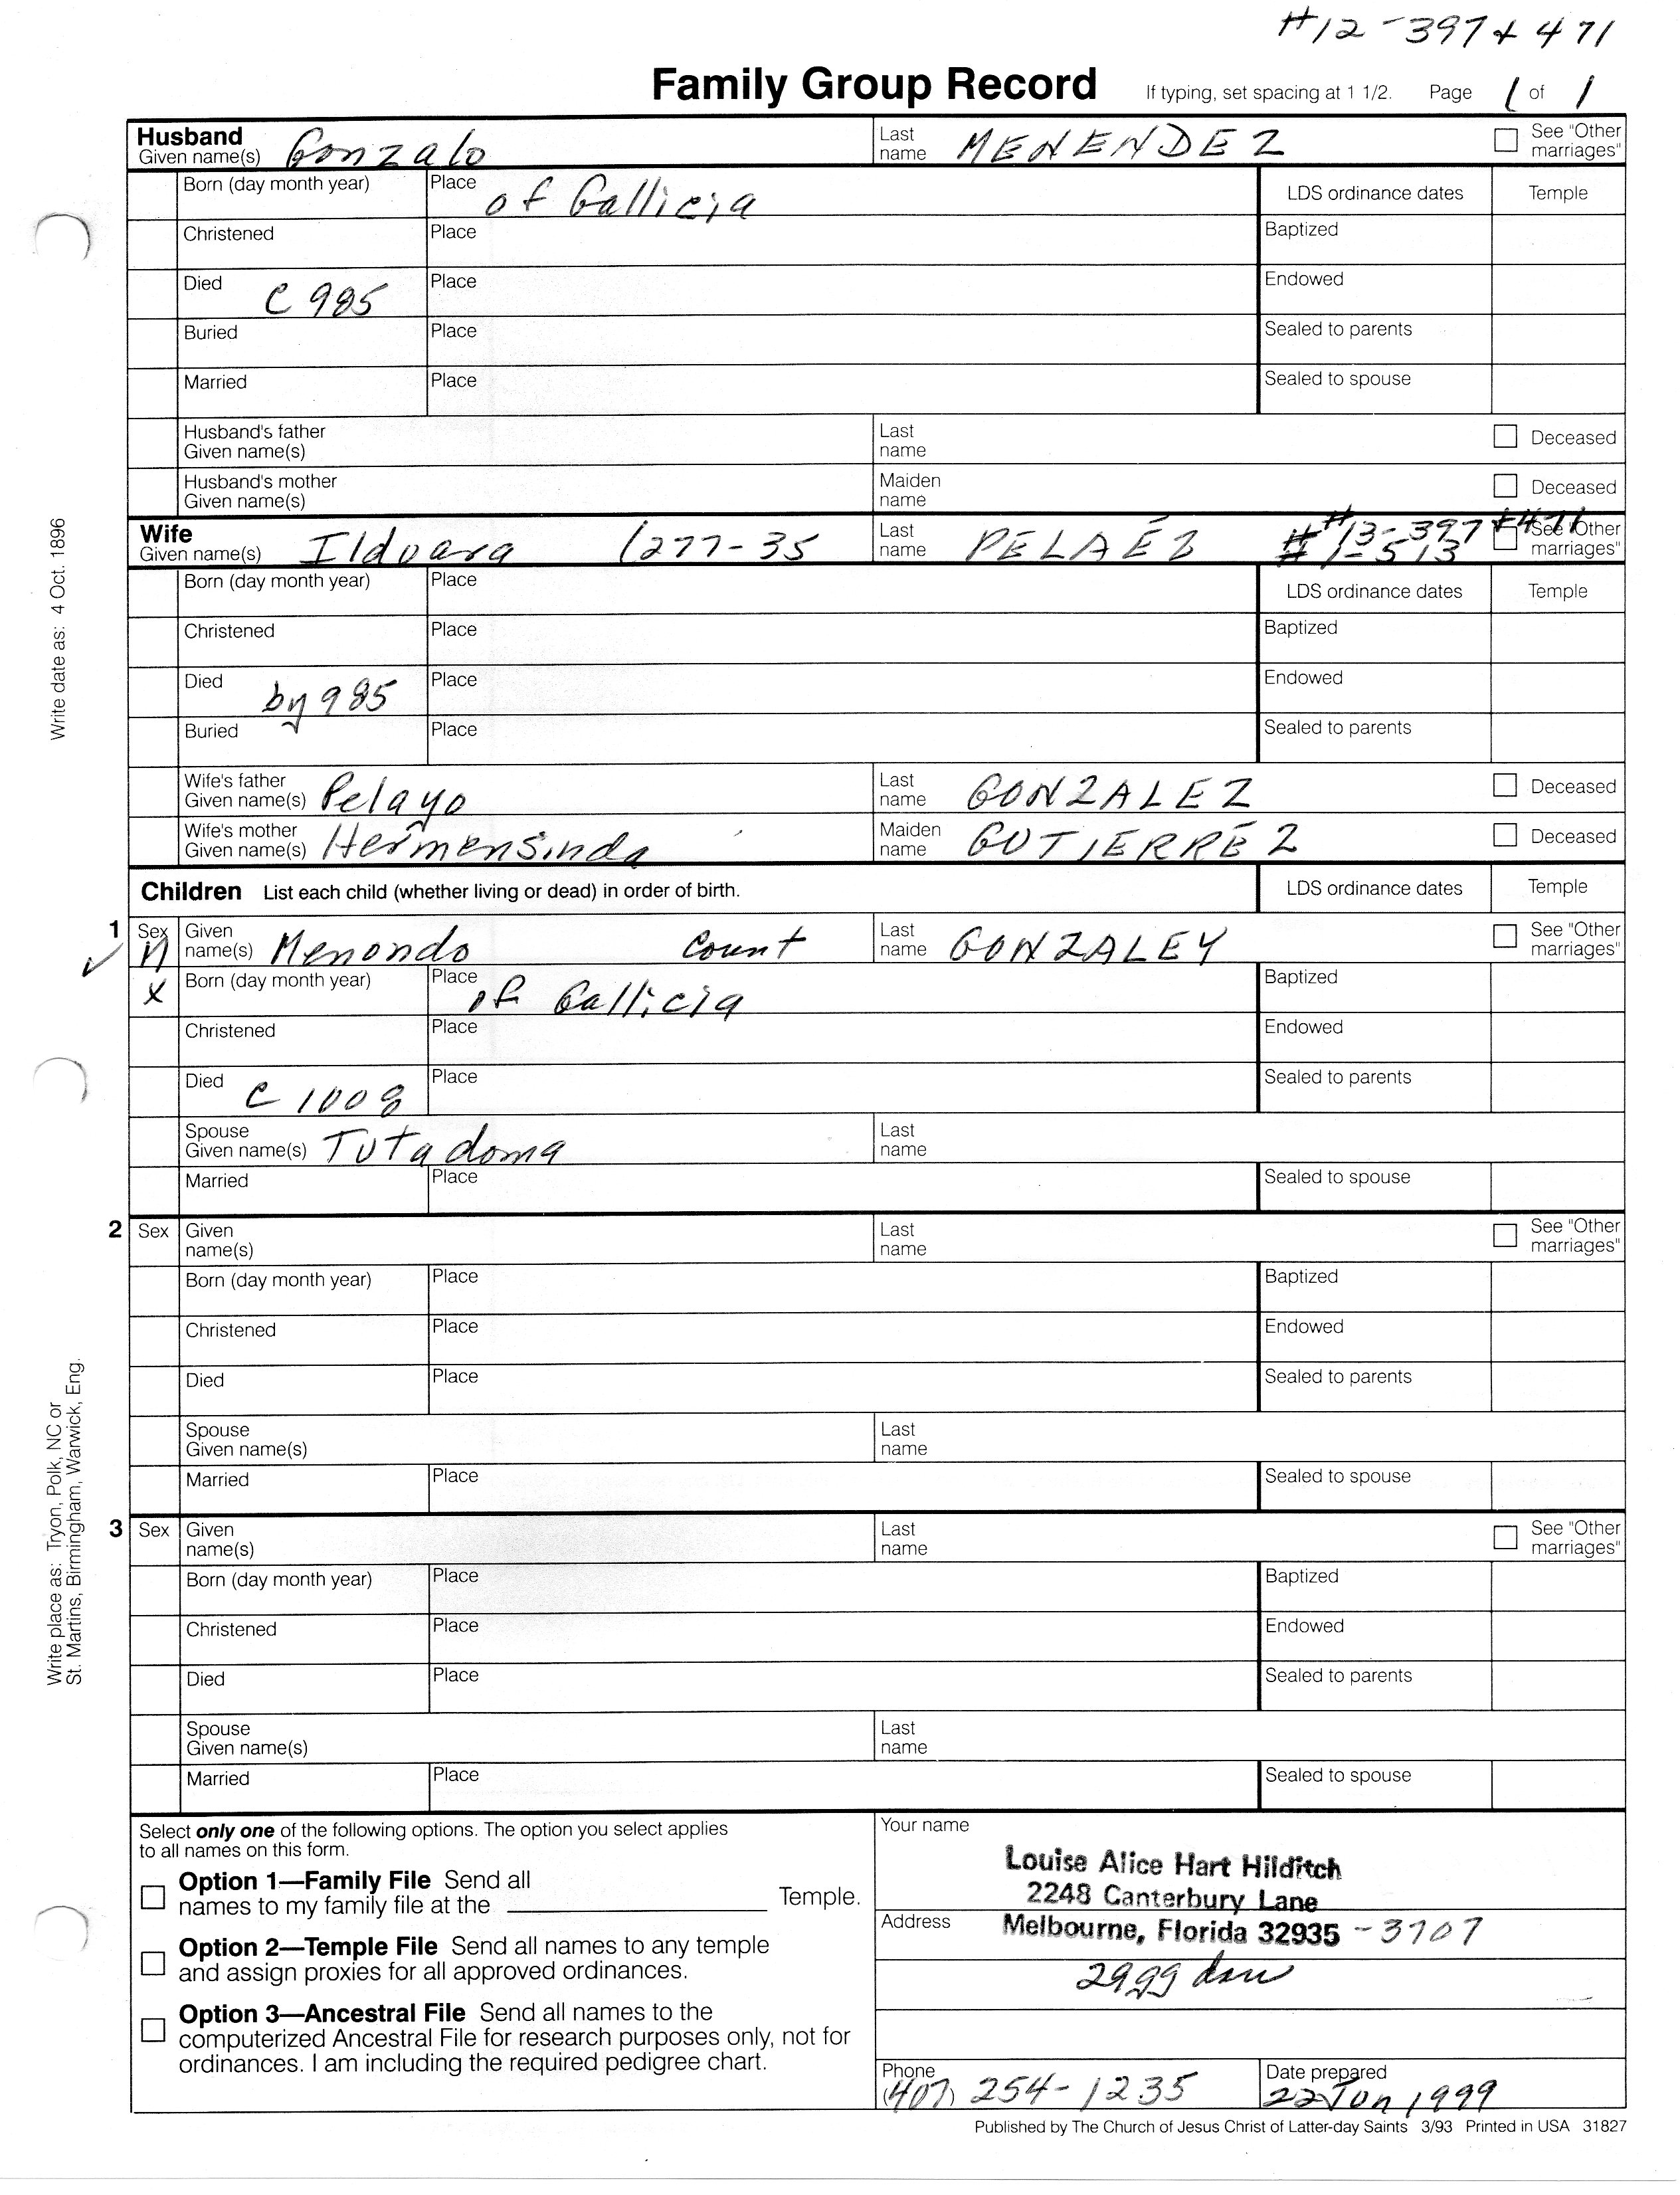 #12-397 + 471
Family Group Record If typing, set spacing at 1 1/2. Page 1 of 1
Husband Given name(s) Gonzalo Last name MENENDEZ See "Other marriages"
Born (day month year) Place of Gallicia LDS ordinance dates Temple
Christened Place Baptized
Died C 985 Place Endowed
Buried Place Sealed to parents
Married Place Sealed to spouse
Husband's father Given name(s) Last name Deceased
Husband's mother Given name(s) Maiden name Deceased
Wife Given name(s) Ilduara (277-35 Last name PELAÉZ #13-397 +471 #1-513 See "Other marriages"
Born (day month year) Place LDS ordinance dates Temple
Christened Place Baptized
Died by 985 Place Endowed
Buried Place Sealed to parents
Wife's father Given name(s) Pelayo Last name GONZALEZ Deceased
Wife's mother Given name(s) Hermensinda Maiden name GUTIERRÉZ Deceased
Children List each child (whether living or dead) in order of birth. LDS ordinance dates Temple
1 Sex M Given name(s) Menondo Count Last name GONZALEY See "Other marriages"
X Born (day month year) Place of Gallicia Baptized
Christened Place Endowed
Died C 1008 Place Sealed to parents
Spouse Given name(s) Tutadoma Last name
Married Place Sealed to spouse
2 Sex Given name(s) Last name See "Other marriages"
Born (day month year) Place Baptized
Christened Place Endowed
Died Place Sealed to parents
Spouse Given name(s) Last name
Married Place Sealed to spouse
3 Sex Given name(s) Last name See "Other marriages"
Born (day month year) Place Baptized
Christened Place Endowed
Died Place Sealed to parents
Spouse Given name(s) Last name
Married Place Sealed to spouse
Select only one of the following options. The option you select applies
to all names on this form.
Option 1—Family File Send all
names to my family file at the Temple.
Option 2—Temple File Send all names to any temple
and assign proxies for all approved ordinances.
Option 3—Ancestral File Send all names to the
computerized Ancestral File for research purposes only, not for
ordinances. I am including the required pedigree chart.
Your name
Louise Alice Hart Hilditch
2248 Canterbury Lane
Address Melbourne, Florida 32935 - 3707
Phone (407) 254-1235 Date prepared 22 Jun 1999
Published by The Church of Jesus Christ of Latter-day Saints 3/93 Printed in USA 31827
Write date as: 4 Oct. 1896
Write place as: Tryon, Polk, NC or
St. Martins, Birmingham, Warwick, Eng.